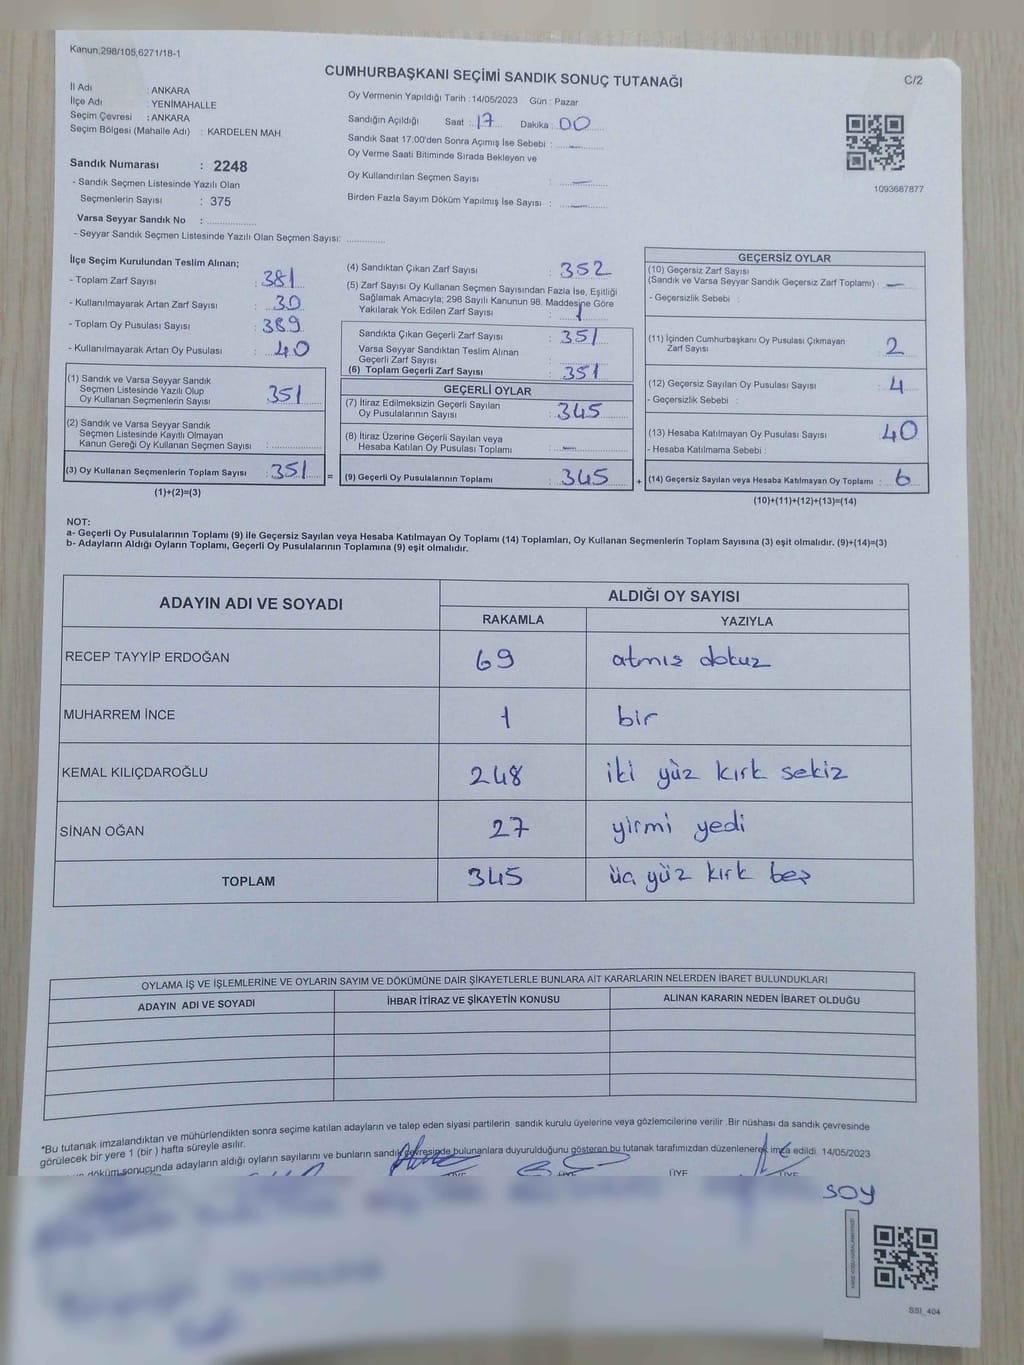 Kanun;298/105,6271/18-1
C/2
CUMHURBAŞKANI SEÇİMİ SANDIK SONUÇ TUTANAĞI
İl Adı : ANKARA
İlçe Adı : YENİMAHALLE
Seçim Çevresi : ANKARA
Seçim Bölgesi (Mahalle Adı) : KARDELEN MAH.
Sandık Numarası : 2248
- Sandık Seçmen Listesinde Yazılı Olan
Seçmenlerin Sayısı : 375
Varsa Seyyar Sandık No :
- Seyyar Sandık Seçmen Listesinde Yazılı Olan Seçmen Sayısı:
Oy Vermenin Yapıldığı Tarih : 14/05/2023 Gün : Pazar
Sandığın Açıldığı Saat : 17 Dakika : 00
Sandık Saat 17.00'den Sonra Açımış İse Sebebi : —
Oy Verme Saati Bitiminde Sırada Bekleyen ve
Oy Kullandırılan Seçmen Sayısı : —
Birden Fazla Sayım Döküm Yapılmış İse Sayısı : —
1093687877
İlçe Seçim Kurulundan Teslim Alınan;
- Toplam Zarf Sayısı : 381
- Kullanılmayarak Artan Zarf Sayısı : 30
- Toplam Oy Pusulası Sayısı : 389
- Kullanılmayarak Artan Oy Pusulası : 40
(1) Sandık ve Varsa Seyyar Sandık
Seçmen Listesinde Yazılı Olup
Oy Kullanan Seçmenlerin Sayısı : 351
(2) Sandık ve Varsa Seyyar Sandık
Seçmen Listesinde Kayıtlı Olmayan
Kanun Gereği Oy Kullanan Seçmen Sayısı :
(3) Oy Kullanan Seçmenlerin Toplam Sayısı : 351 =
(1)+(2)=(3)
(4) Sandıktan Çıkan Zarf Sayısı : 352
(5) Zarf Sayısı Oy Kullanan Seçmen Sayısından Fazla İse, Eşitliği
Sağlamak Amacıyla; 298 Sayılı Kanunun 98. Maddesine Göre
Yakılarak Yok Edilen Zarf Sayısı : 1
Sandıkta Çıkan Geçerli Zarf Sayısı : 351
Varsa Seyyar Sandıktan Teslim Alınan
Geçerli Zarf Sayısı :
(6) Toplam Geçerli Zarf Sayısı : 351
GEÇERLİ OYLAR
(7) İtiraz Edilmeksizin Geçerli Sayılan
Oy Pusulalarının Sayısı : 345
(8) İtiraz Üzerine Geçerli Sayılan veya
Hesaba Katılan Oy Pusulası Toplamı : —
(9) Geçerli Oy Pusulalarının Toplamı : 345 +
GEÇERSİZ OYLAR
(10) Geçersiz Zarf Sayısı
(Sandık ve Varsa Seyyar Sandık Geçersiz Zarf Toplamı) : —
- Geçersizlik Sebebi :
(11) İçinden Cumhurbaşkanı Oy Pusulası Çıkmayan
Zarf Sayısı : 2
(12) Geçersiz Sayılan Oy Pusulası Sayısı : 4
- Geçersizlik Sebebi :
(13) Hesaba Katılmayan Oy Pusulası Sayısı : 40
- Hesaba Katılmama Sebebi :
(14) Geçersiz Sayılan veya Hesaba Katılmayan Oy Toplamı : 6
(10)+(11)+(12)+(13)=(14)
NOT:
a- Geçerli Oy Pusulalarının Toplamı (9) ile Geçersiz Sayılan veya Hesaba Katılmayan Oy Toplamı (14) Toplamları, Oy Kullanan Seçmenlerin Toplam Sayısına (3) eşit olmalıdır. (9)+(14)=(3)
b- Adayların Aldığı Oyların Toplamı, Geçerli Oy Pusulalarının Toplamına (9) eşit olmalıdır.
ADAYIN ADI VE SOYADI
ALDIĞI OY SAYISI
RAKAMLA YAZIYLA
RECEP TAYYİP ERDOĞAN 69 atmış dokuz
MUHARREM İNCE 1 bir
KEMAL KILIÇDAROĞLU 248 iki yüz kırk sekiz
SİNAN OĞAN 27 yirmi yedi
TOPLAM 345 üç yüz kırk beş
OYLAMA İŞ VE İŞLEMLERİNE VE OYLARIN SAYIM VE DÖKÜMÜNE DAİR ŞİKAYETLERLE BUNLARA AİT KARARLARIN NELERDEN İBARET BULUNDUKLARI
ADAYIN ADI VE SOYADI İHBAR İTİRAZ VE ŞİKAYETİN KONUSU ALINAN KARARIN NEDEN İBARET OLDUĞU
*Bu tutanak imzalandıktan ve mühürlendikten sonra seçime katılan adayların ve talep eden siyasi partilerin sandık kurulu üyelerine veya gözlemcilerine verilir .Bir nüshası da sandık çevresinde
görülecek bir yere 1 (bir ) hafta süreyle asılır.
döküm sonucunda adayların aldığı oyların sayılarını ve bunların sandık çevresinde bulunanlara duyurulduğunu gösteren bu tutanak tarafımızdan düzenlenerek imza edildi. 14/05/2023
ÜYE ÜYE ÜYE ÜYE
SOY
SSI_404